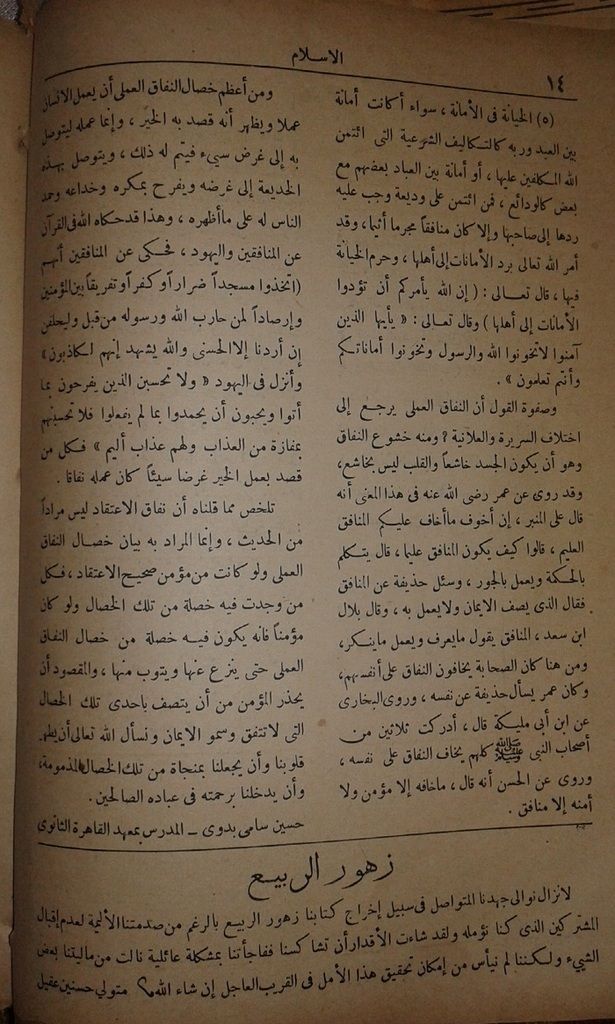 الاسلام
١٤
(٥) الخيانة فى الأمانة ، سواء أكانت أمانة
بين العبد وربه كالتكاليف الشرعية التى ائتمن
الله المكلفين عليها ، أو أمانة بين العباد بعضهم مع
بعض كالودائع ، فمن ائتمن على وديعة وجب عليه
ردها إلى صاحبها وإلا كان منافقاً مجرما أثيما ، وقد
أمر الله تعالى برد الأمانات إلى أهلها ، وحرم الخيانة
فيها ، قال تعالى : ( إن الله يأمركم أن تؤدوا
الأمانات إلى أهلها ) وقال تعالى : « يأيها الذين
آمنوا لاتخونوا الله والرسول وتخونوا أماناتكم
وأنتم تعلمون » .
وصفوة القول أن النفاق العملى يرجع إلى
اختلاف السريرة والعلانية ? ومنه خشوع النفاق
وهو أن يكون الجسد خاشعاً والقلب ليس بخاشع ،
وقد روى عن عمر رضى الله عنه فى هذا المعنى أنه
قال على المنبر ، إن أخوف ماأخاف عليكم المنافق
العليم ، قالوا كيف يكون المنافق عليما ، قال يتكلم
بالحكمة ويعمل بالجور ، وسئل حذيفة عن المنافق
فقال الذى يصف الايمان ولايعمل به ، وقال بلال
ابن سعد ، المنافق يقول مايعرف ويعمل ماينكر ،
ومن هنا كان الصحابة يخافون النفاق على أنفسهم ،
وكان عمر يسأل حذيفة عن نفسه ، وروى البخارى
عن ابن أبى مليكة قال ، أدركت ثلاثين من
أصحاب النبى ﷺ كلهم يخاف النفاق على نفسه ،
وروى عن الحسن أنه قال ، ماخافه إلا مؤمن ولا
أمنه إلا منافق .
ومن أعظم خصال النفاق العملى أن يعمل الانسان
عملا ويظهر أنه قصد به الخير ، وإنما عمله ليتوصل
به إلى غرض سيىء فيتم له ذلك ، ويتوصل بهذه
الخديعة إلى غرضه ويفرح بمكره وخداعه وحمد
الناس له على ماأظهره ، وهذا قد حكاه الله فى القرآن
عن المنافقين واليهود ، فحكى عن المنافقين أنهم
(اتخذوا مسجداً ضراراً وكفراً وتفريقاً بين المؤمنين
وإرصاداً لمن حارب الله ورسوله من قبل وليحلفن
إن أردنا إلا الحسنى والله يشهد إنهم لكاذبون»
وأنزل فى اليهود « ولا تحسبن الذين يفرحون بما
أتوا ويحبون أن يحمدوا بما لم يفعلوا فلا تحسبنهم
بمفازة من العذاب ولهم عذاب أليم » فكل من
قصد بعمل الخير غرضا سيئاً كان عمله نفاقا .
تلخص مما قلناه أن نفاق الاعتقاد ليس مراداً
من الحديث ، وإنما المراد به بيان خصال النفاق
العملى ولو كانت من مؤمن صحيح الاعتقاد ، فكل
من وجدت فيه خصلة من تلك الخصال ولو كان
مؤمناً فانه يكون فيه خصلة من خصال النفاق
العملى حتى ينزع عنها ويتوب منها ، والمقصود أن
يحذر المؤمن من أن يتصف باحدى تلك الخصال
التى لاتتفق وسمو الايمان ونسأل الله تعالى أن يطهر
قلوبنا وأن يجعلنا بمنجاة من تلك الخصال المذمومة،
وأن يدخلنا برحمته فى عباده الصالحين .
حسين سامى بدوى ــ المدرس بمعهد القاهرة الثانوى
زهور الربيع
لانزال نوالى جهدنا المتواصل فى سبيل إخراج كتابنا زهور الربيع بالرغم من صدمتنا الأليمة لعدم إقبال
المشتركين الذى كنا نؤمله ولقد شاءت الأقدار أن تشاكسنا ففاجأتنا بمشكلة عائلية نالت من ماليتنا بعض
الشيىء ولكننا لم نيأس من إمكان تحقيق هذا الأمل فى القريب العاجل إن شاء الله متولى حسنين عقيل